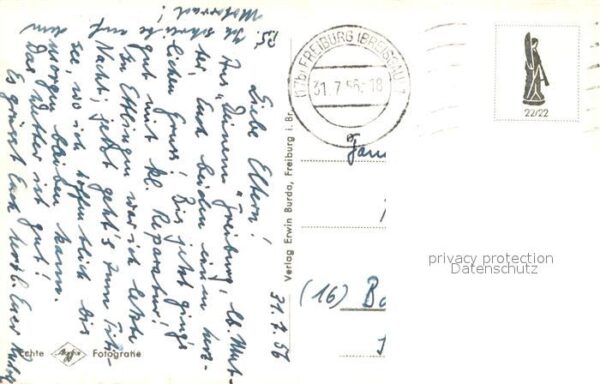 31.7.56
Liebe Eltern!
Aus "Deinem" Freiburg, lb. Mut-
ter, Euch beiden einen herz-
lichen Gruss! Bis jetzt ging's
gut mit kl. Reparatur!
In Ettlingen war ich letzte
Nacht, jetzt geht's zum Titi-
see, wo ich hoffentlich bis
morgen bleiben kann.
Das Wetter ist gut!
Es grüsst Euch herzl. Euer
PS. Ich schreibe auf dem
Motorrad!
Echte Agfa Fotografie
Verlag Erwin Burda, Freiburg i. Br.
(17b) FREIBURG (BREISGAU)
31.7.56-18
22/22
Fam
(16) Ba
privacy protection
Datenschutz